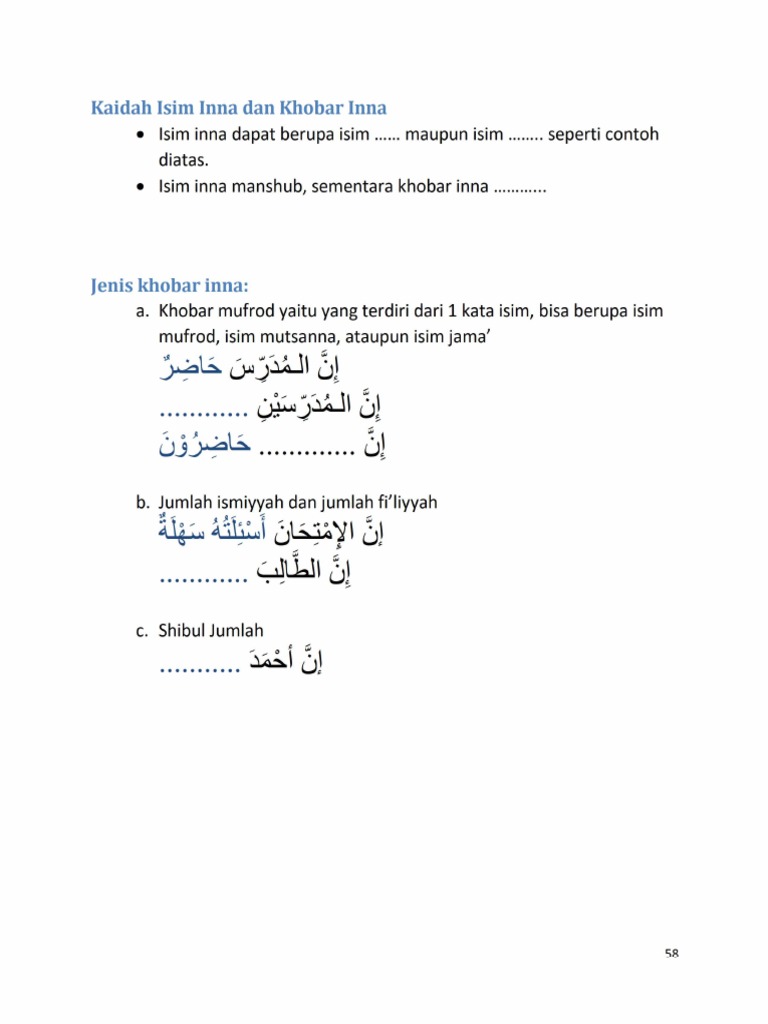 Kaidah Isim Inna dan Khobar Inna
• Isim inna dapat berupa isim …… maupun isim …….. seperti contoh
diatas.
• Isim inna manshub, sementara khobar inna ………...
Jenis khobar inna:
a. Khobar mufrod yaitu yang terdiri dari 1 kata isim, bisa berupa isim
mufrod, isim mutsanna, ataupun isim jama’
إِنَّ الـمُدَرِّسَ حَاضِرٌ
إِنَّ الـمُدَرِّسَيْنِ ............
إِنَّ ............. حَاضِرُوْنَ
b. Jumlah ismiyyah dan jumlah fi’liyyah
إنَّ الإِمْتِحَانَ أَسْئِلَتُهُ سَهْلَةٌ
إِنَّ الطَّالِبَ ............
c. Shibul Jumlah
إنَّ أحْمَدَ ...........
58